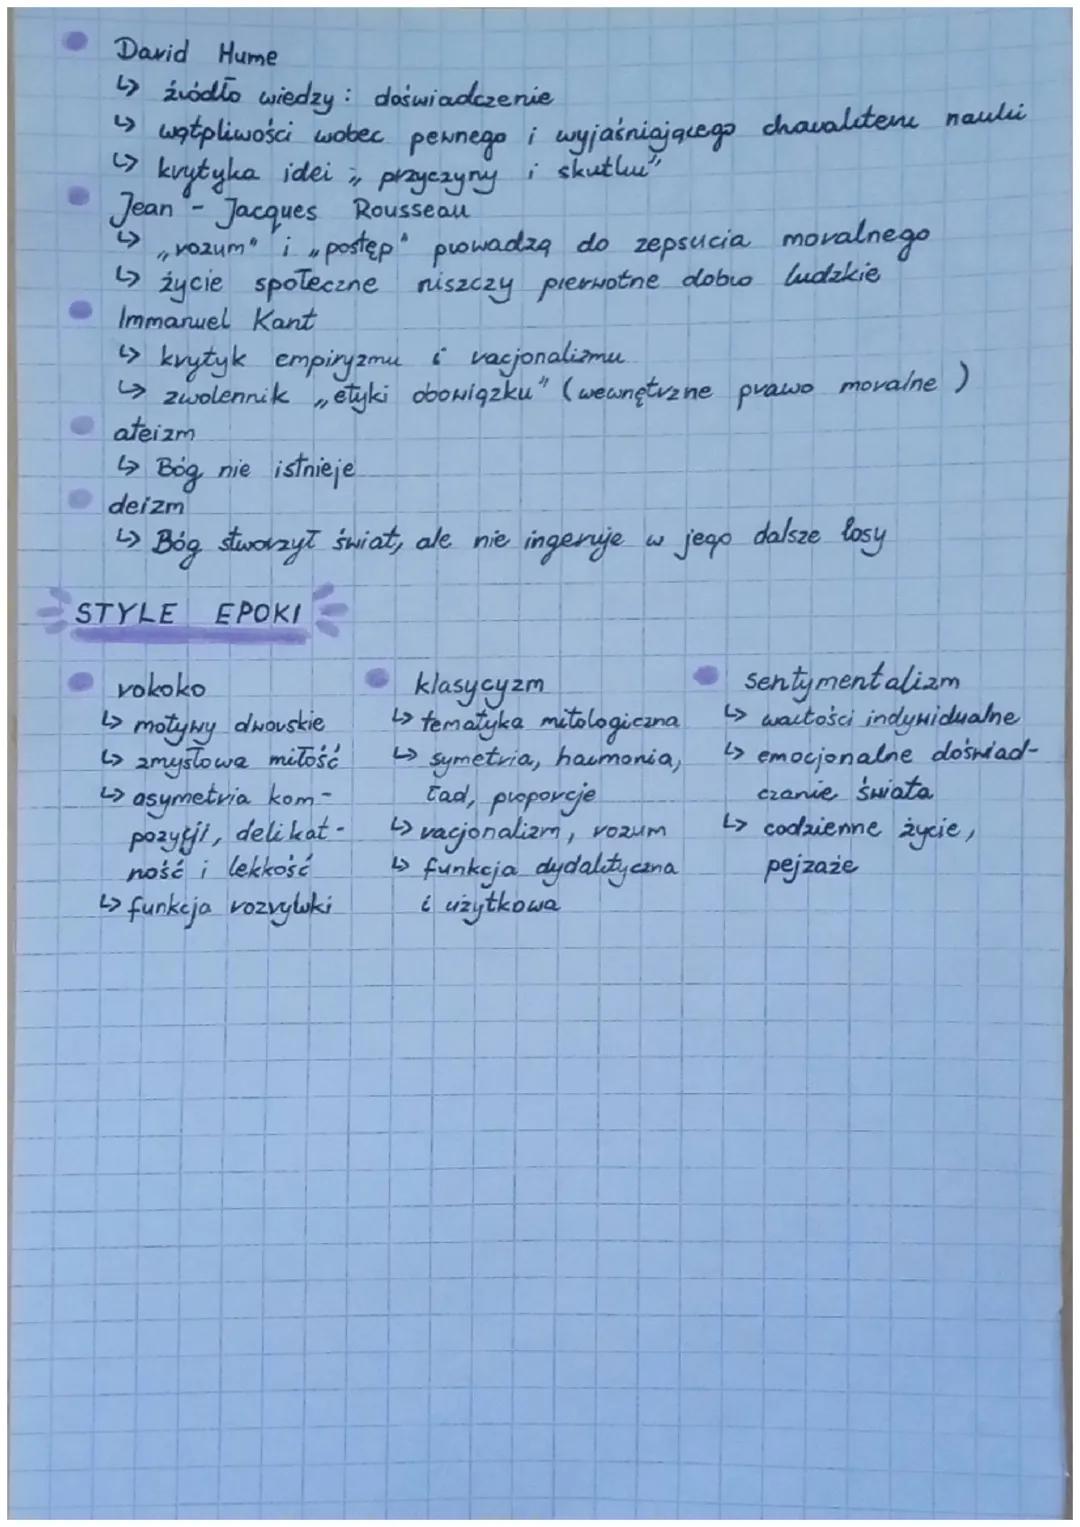 David Hume
↳ źródło wiedzy: doświadczenie
↳ wątpliwości wobec pewnego i wyjaśniającego charakteru nauki
↳ krytyka idei „przyczyny i skutku"
Jean - Jacques Rousseau
↳ „rozum" i „postęp" prowadzą do zepsucia moralnego
↳ życie społeczne niszczy pierwotne dobro ludzkie
Immanuel Kant
↳ krytyk empiryzmu i racjonalizmu
↳ zwolennik „etyki obowiązku" (wewnętrzne prawo moralne)
ateizm
↳ Bóg nie istnieje
deizm
↳ Bóg stworzył świat, ale nie ingeruje w jego dalsze losy
STYLE EPOKI
rokoko
↳ motywy dworskie
↳ zmysłowa miłość
↳ asymetria kom-
pozycji, delikat-
ność i lekkość
↳ funkcja rozrywki
klasycyzm
↳ tematyka mitologiczna
↳ symetria, harmonia,
ład, proporcje
↳ racjonalizm, rozum
↳ funkcja dydaktyczna
i użytkowa
sentymentalizm
↳ wartości indywidualne
↳ emocjonalne doświad-
czanie świata
↳ codzienne życie,
pejzaże